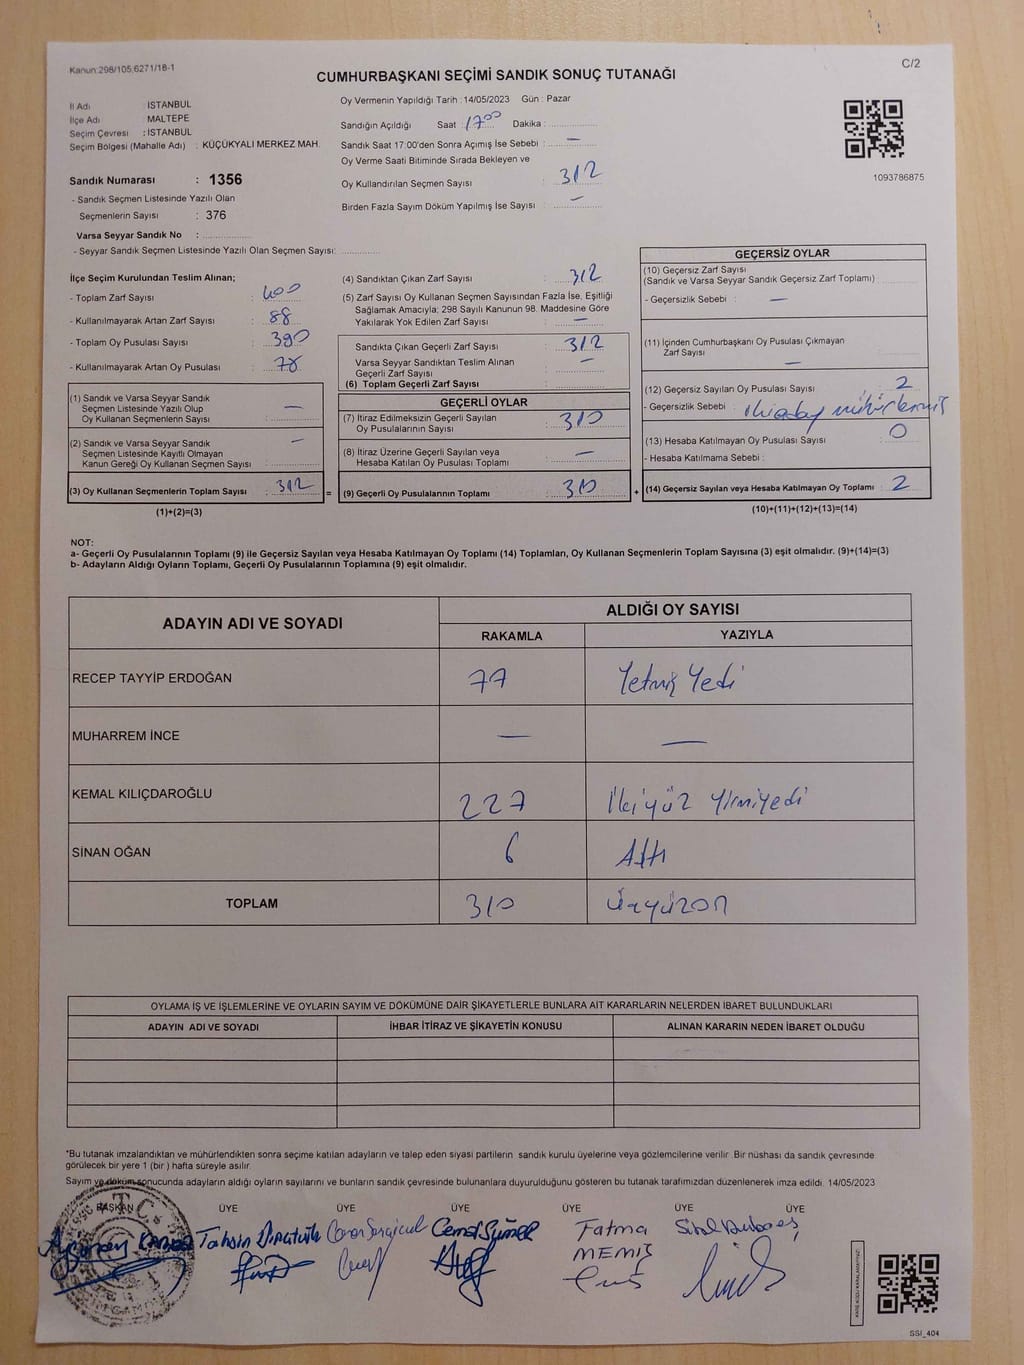 Kanun:298/105,6271/18-1
C/2
CUMHURBAŞKANI SEÇİMİ SANDIK SONUÇ TUTANAĞI
İl Adı : İSTANBUL
İlçe Adı : MALTEPE
Seçim Çevresi : İSTANBUL
Seçim Bölgesi (Mahalle Adı) : KÜÇÜKYALI MERKEZ MAH.
Sandık Numarası : 1356
- Sandık Seçmen Listesinde Yazılı Olan
Seçmenlerin Sayısı : 376
Varsa Seyyar Sandık No :
- Seyyar Sandık Seçmen Listesinde Yazılı Olan Seçmen Sayısı:
Oy Vermenin Yapıldığı Tarih :14/05/2023 Gün : Pazar
Sandığın Açıldığı Saat : 17 00 Dakika :
Sandık Saat 17:00'den Sonra Açımış İse Sebebi : —
Oy Verme Saati Bitiminde Sırada Bekleyen ve
Oy Kullandırılan Seçmen Sayısı : 312
Birden Fazla Sayım Döküm Yapılmış İse Sayısı : —
1093786875
İlçe Seçim Kurulundan Teslim Alınan;
- Toplam Zarf Sayısı : 400
- Kullanılmayarak Artan Zarf Sayısı : 88
- Toplam Oy Pusulası Sayısı : 390
- Kullanılmayarak Artan Oy Pusulası : 78
(1) Sandık ve Varsa Seyyar Sandık
Seçmen Listesinde Yazılı Olup
Oy Kullanan Seçmenlerın Sayısı : —
(2) Sandık ve Varsa Seyyar Sandık
Seçmen Listesinde Kayıtlı Olmayan
Kanun Gereği Oy Kullanan Seçmen Sayısı : —
(3) Oy Kullanan Seçmenlerin Toplam Sayısı : 312
(1)+(2)=(3)
(4) Sandıktan Çıkan Zarf Sayısı : 312
(5) Zarf Sayısı Oy Kullanan Seçmen Sayısından Fazla İse, Eşitliği
Sağlamak Amacıyla; 298 Sayılı Kanunun 98. Maddesine Göre
Yakılarak Yok Edilen Zarf Sayısı : —
Sandıkta Çıkan Geçerli Zarf Sayısı : 312
Varsa Seyyar Sandıktan Teslim Alınan
Geçerli Zarf Sayısı : —
(6) Toplam Geçerli Zarf Sayısı :
GEÇERLİ OYLAR
(7) İtiraz Edilmeksizin Geçerli Sayılan
Oy Pusulalarının Sayısı : 310
(8) İtiraz Üzerine Geçerli Sayılan veya
Hesaba Katılan Oy Pusulası Toplamı : —
= (9) Geçerli Oy Pusulalarının Toplamı : 310
GEÇERSİZ OYLAR
(10) Geçersiz Zarf Sayısı
(Sandık ve Varsa Seyyar Sandık Geçersiz Zarf Toplamı)
- Geçersizlik Sebebi : —
(11) İçinden Cumhurbaşkanı Oy Pusulası Çıkmayan
Zarf Sayısı : —
(12) Geçersiz Sayılan Oy Pusulası Sayısı : 2
- Geçersizlik Sebebi : iki aday mühürlemiş
(13) Hesaba Katılmayan Oy Pusulası Sayısı : 0
- Hesaba Katılmama Sebebi :
+ (14) Geçersiz Sayılan veya Hesaba Katılmayan Oy Toplamı : 2
(10)+(11)+(12)+(13)=(14)
NOT:
a- Geçerli Oy Pusulalarının Toplamı (9) ile Geçersiz Sayılan veya Hesaba Katılmayan Oy Toplamı (14) Toplamları, Oy Kullanan Seçmenlerin Toplam Sayısına (3) eşit olmalıdır. (9)+(14)=(3)
b- Adayların Aldığı Oyların Toplamı, Geçerli Oy Pusulalarının Toplamına (9) eşit olmalıdır.
ADAYIN ADI VE SOYADI
ALDIĞI OY SAYISI
RAKAMLA YAZIYLA
RECEP TAYYİP ERDOĞAN 77 Yetmiş Yedi
MUHARREM İNCE — —
KEMAL KILIÇDAROĞLU 227 İkiyüz Yirmiyedi
SİNAN OĞAN 6 Altı
TOPLAM 310 Üçyüzon
OYLAMA İŞ VE İŞLEMLERİNE VE OYLARIN SAYIM VE DÖKÜMÜNE DAİR ŞİKAYETLERLE BUNLARA AİT KARARLARIN NELERDEN İBARET BULUNDUKLARI
ADAYIN ADI VE SOYADI İHBAR İTİRAZ VE ŞİKAYETİN KONUSU ALINAN KARARIN NEDEN İBARET OLDUĞU
*Bu tutanak imzalandıktan ve mühürlendikten sonra seçime katılan adayların ve talep eden siyasi partilerin sandık kurulu üyelerine veya gözlemcilerine verilir. Bir nüshası da sandık çevresinde
görülecek bir yere 1 (bir ) hafta süreyle asılır.
Sayım ve döküm sonucunda adayların aldığı oyların sayılarını ve bunların sandık çevresinde bulunanlara duyurulduğunu gösteren bu tutanak tarafımızdan düzenlenerek imza edildi. 14/05/2023
BAŞKAN ÜYE ÜYE ÜYE ÜYE ÜYE ÜYE
T.C.
Tahsin Cemal Fatma
MEMİŞ
SSİ_404